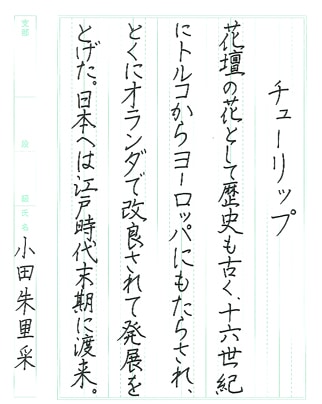 チューリップ
花壇の花として歴史も古く、十六世紀
にトルコからヨーロッパにもたらされ、
とくにオランダで改良されて発展を
とげた。日本へは江戸時代末期に渡来。
支部
段
級
氏名
小田朱里采